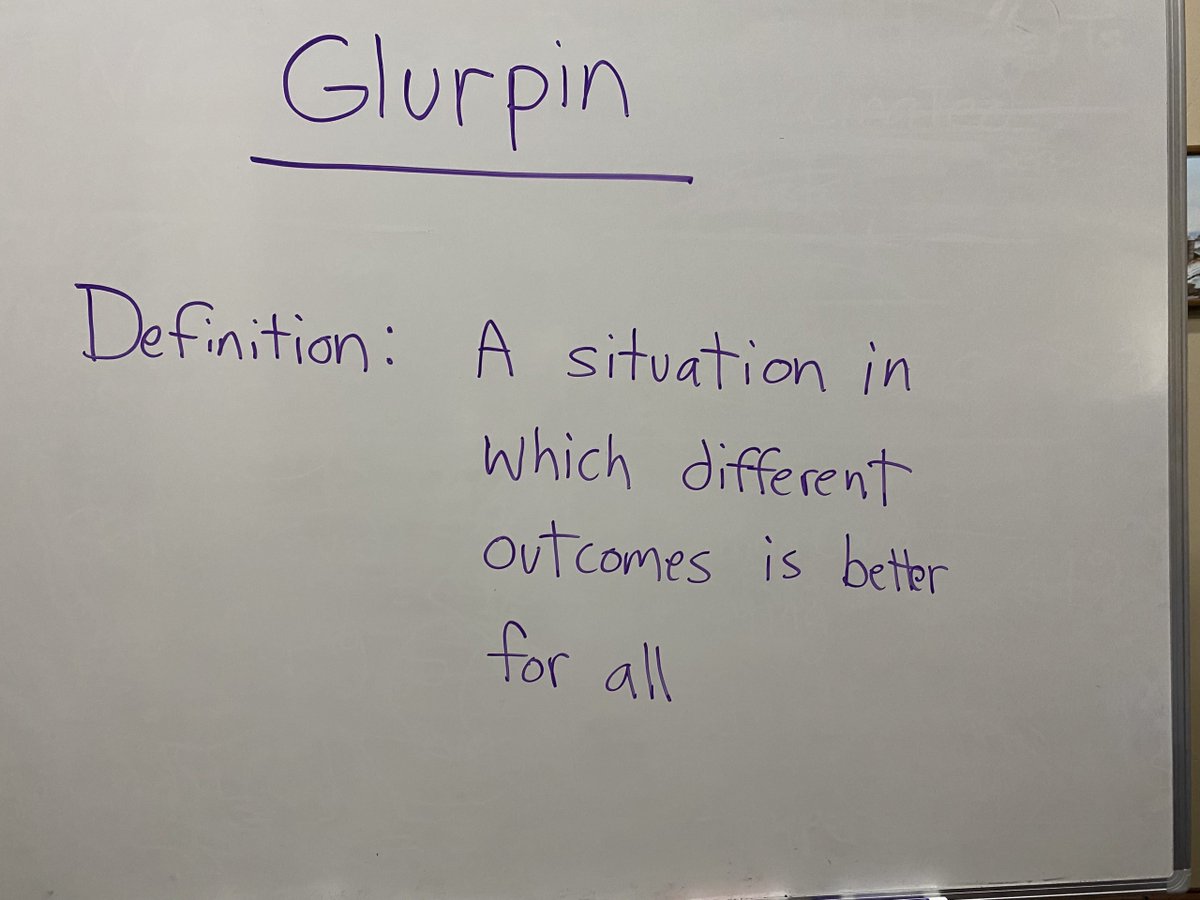 Glurpin
Definition: A situation in
which different
outcomes is better
for all